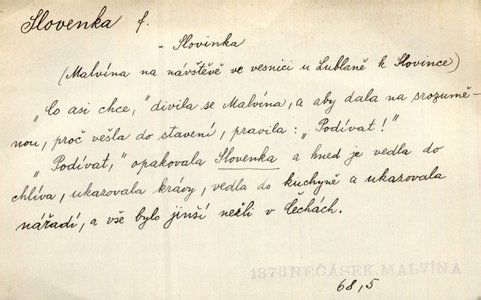 Slovenka f.
= Slovinka
(Malvína na návštěvě ve vesnici u Lublaně k Slovince)
"Co asi chce," divila se Malvína, a aby dala na srozumě-
nou, proč vešla do stavení, pravila: "Podívat!"
"Podívat," opakovala Slovenka a hned je vedla do
chlíva, ukazovala krávy, vedla do kuchyně a ukazovala
nářadí, a vše bylo jinší nežli v Čechách.
1876 NEČÁSEK, MALVÍNA
68,5